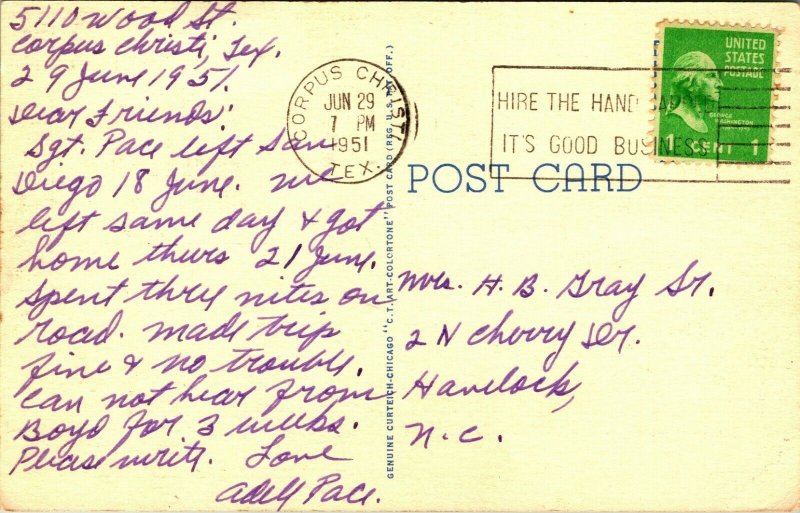 5110 Wood St.
Corpus Christi, Tex.
29 June 1951.
Dear Friends:
Sgt. Pace left San
Diego 18 June. me
left same day & got
home thurs 21 June.
Spent three nites on
road. made trip
fine & no trouble.
Can not hear from
Boyd for 3 weeks.
Please write. Love
Adell Pace.
GENUINE CURTEICH-CHICAGO "C.T. ART-COLORTONE" POST CARD (REG. U.S. PAT. OFF.)
CORPUS CHRISTI
JUN 29
7 PM
1951
TEX.
HIRE THE HANDICAPPED
IT'S GOOD BUSINESS
UNITED
STATES
POSTAGE
GEORGE
WASHINGTON
1 CENT 1
POST CARD
Mrs. H. B. Gray Sr.
2 N Cherry Dr.
Havelock,
N.C.